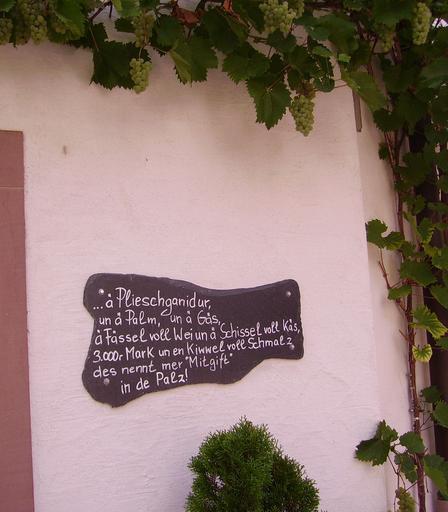 ...å Plieschganidur,
un å Palm, un å Gås,
å Fåssel voll Wei un å Schissel voll Kås,
3.000r Mark un en Kiwwel voll Schmalz
des nennt mer "Mitgift"
in de Palz!